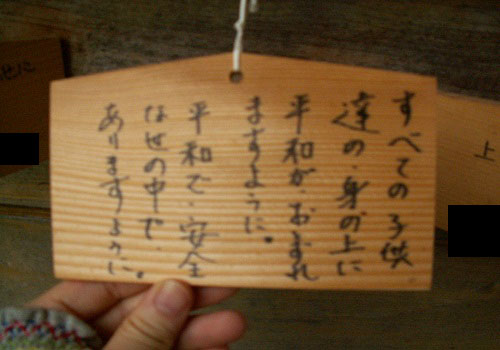 すべての子供
達の身の上に
平和が、おとずれ
ますように。
平和で、安全
な世の中で
ありますように。
せに
上